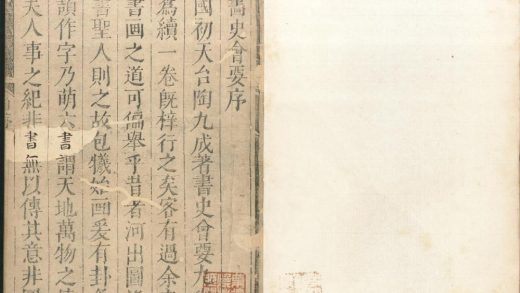 畫史會要序
國初天台陶九成著書史會要九
為續一卷既梓行之矣客有過余
書画之道可偏舉乎昔者河出圖
書聖人則之故包犧始画爰有卦
頡作字乃萌六書謂天地萬物之
天人事之紀非書無以傳其意非